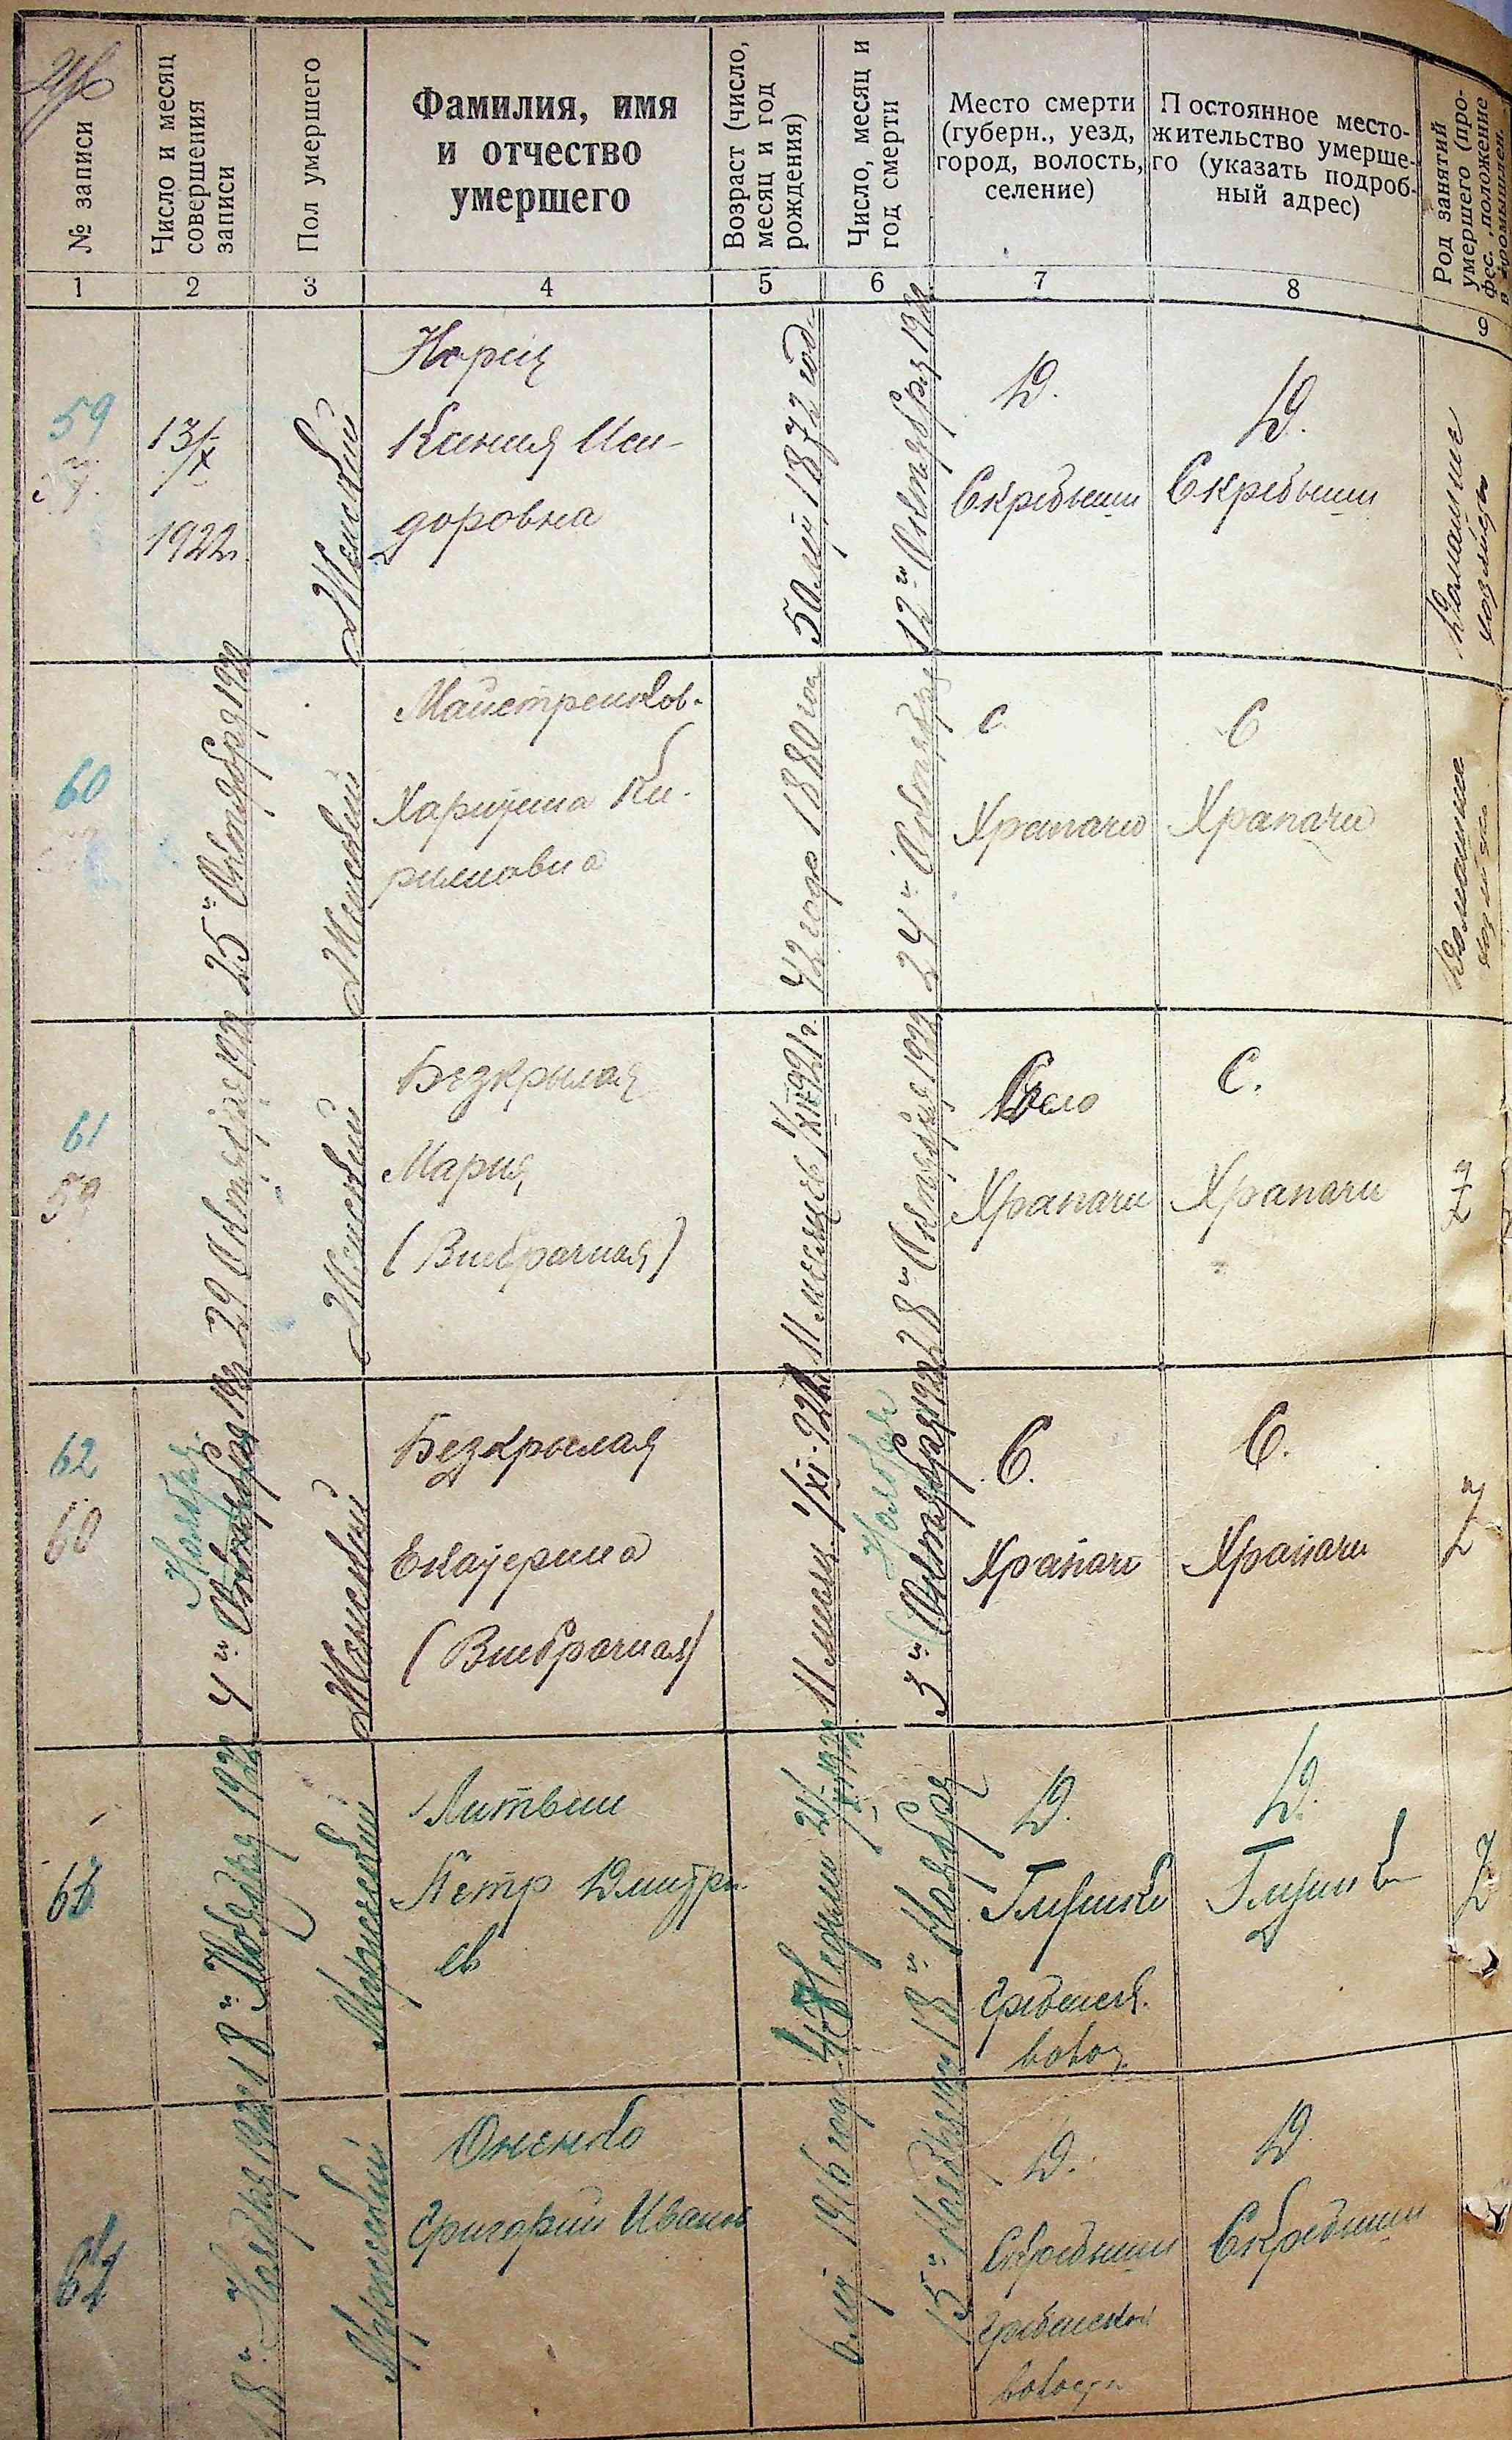 № записи
Число и месяц
совершения
записи
Пол умершего
Фамилия, имя
и отчество
умершего
Возраст (число,
месяц и год
рождения)
Число, месяц и
год смерти
Место смерти
(губерн., уезд,
город, волость,
селение)
Постоянное место-
жительство умерше-
го (указать подроб-
ный адрес)
Род занятий
умершего (про-
фес., положение
1
2
3
4
5
6
7
8
9
59
13/X
1922г.
Женский
Ксения Иси-
доровна
50 лет 1872 год
12го Октября 1922
Д.
Скребыши
Д.
Скребыши
Домашнее
60
25го Октября 1922
Женский
Майстренков.
Харитина Ки-
рилловна
42 года 1880 год
24го Октября
с
Храпачи
С
Храпачи
Домашнее
61
59
29 Октября 1922
Женский
Безкрылая
Мария
(Внебрачная)
11 месяцев
28го Октября 1922
Село
Храпачи
С.
Храпачи
62
60
Ноября
4го Октября 1922
Женский
Безкрылая
Екатерина
(Внебрачная)
11 месяц. 1/XI-921
Ноября
3го Октября 1922
С.
Храпачи
С.
Храпачи
63
18го Ноября 1922
Мужеский
Литвин
Петр Дмитри-
ев
Недели
18го Ноября
Д.
Глушки
Гребенск.
волос.
Д.
Глушки
64
18го Ноября 1922
Мужеский
Оненко
Григорий Иванов
6 лет 1916 год
15го Ноября
Д.
Скребыши
Гребенской
волости
Д
Скребыши